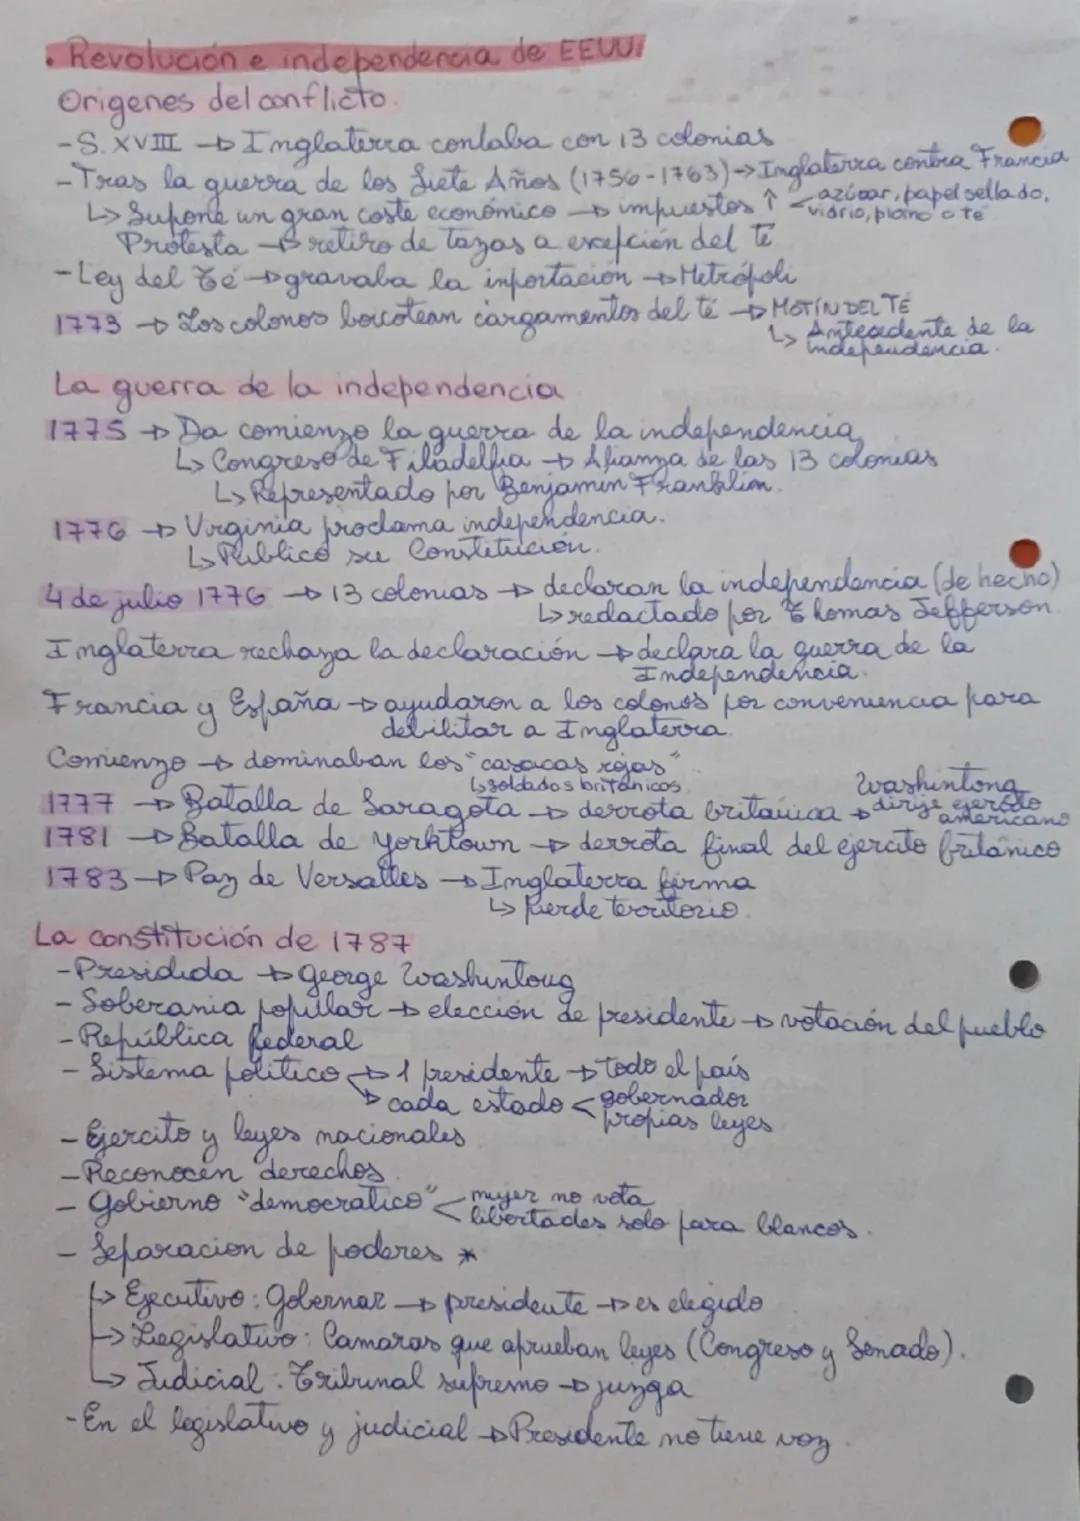 • Revolución e independencia de EEUU.
Origenes del conflicto.
- S. XVIII → Inglaterra contaba con 13 colonias
- Tras la guerra de los Siete Años (1756-1763) → Inglaterra contra Francia
↳ Supone un gran coste económico → impuestos ↑ < azúcar, papel sellado, vidrio, plomo o té
Protesta → retiro de tazas a excepción del té
- Ley del Té → gravaba la inportación → Metrópoli
1773 → Los colonos boicotean cargamentos del té → MOTÍN DEL TÉ
↳ Antecedente de la independencia.
La guerra de la independencia
1775 → Da comienzo la guerra de la independencia
↳ Congreso de Filadelfia → Alianza de las 13 colonias
↳ Representado por Benjamin Franklin.
1776 → Virginia proclama independencia.
↳ Publicó su Constitución.
4 de julio 1776 → 13 colonias → declaran la independencia (de hecho)
↳ redactado por Thomas Jefferson
Inglaterra rechaza la declaración → declara la guerra de la Independencia.
Francia y España → ayudaron a los colonos por conveniencia para debilitar a Inglaterra.
Comienzo → dominaban los "casacas rojas"
↳ soldados británicos
1777 → Batalla de Saragota → derrota británica → Washintong dirije ejercito americano
1781 → Batalla de Yorktown → derrota final del ejercito británico
1783 → Paz de Versalles → Inglaterra firma
↳ pierde territorio.
La constitución de 1787
- Presidida → George Washintong
- Soberania popular → elección de presidente → votación del pueblo
- República federal
- Sistema político → 1 presidente → todo el país
→ cada estado < gobernador propias leyes
- Ejercito y leyes nacionales
- Reconocen derechos
- Gobierno "democratico" < mujer no vota libertades solo para blancos.
- Separacion de poderes *
↳ Ejecutivo: Gobernar → presidente → es elegido
↳ Legislativo: Camaras que aprueban leyes (Congreso y Senado).
↳ Judicial: Tribunal supremo → juzga
- En el legislativo y judicial → Presidente no tiene voz.